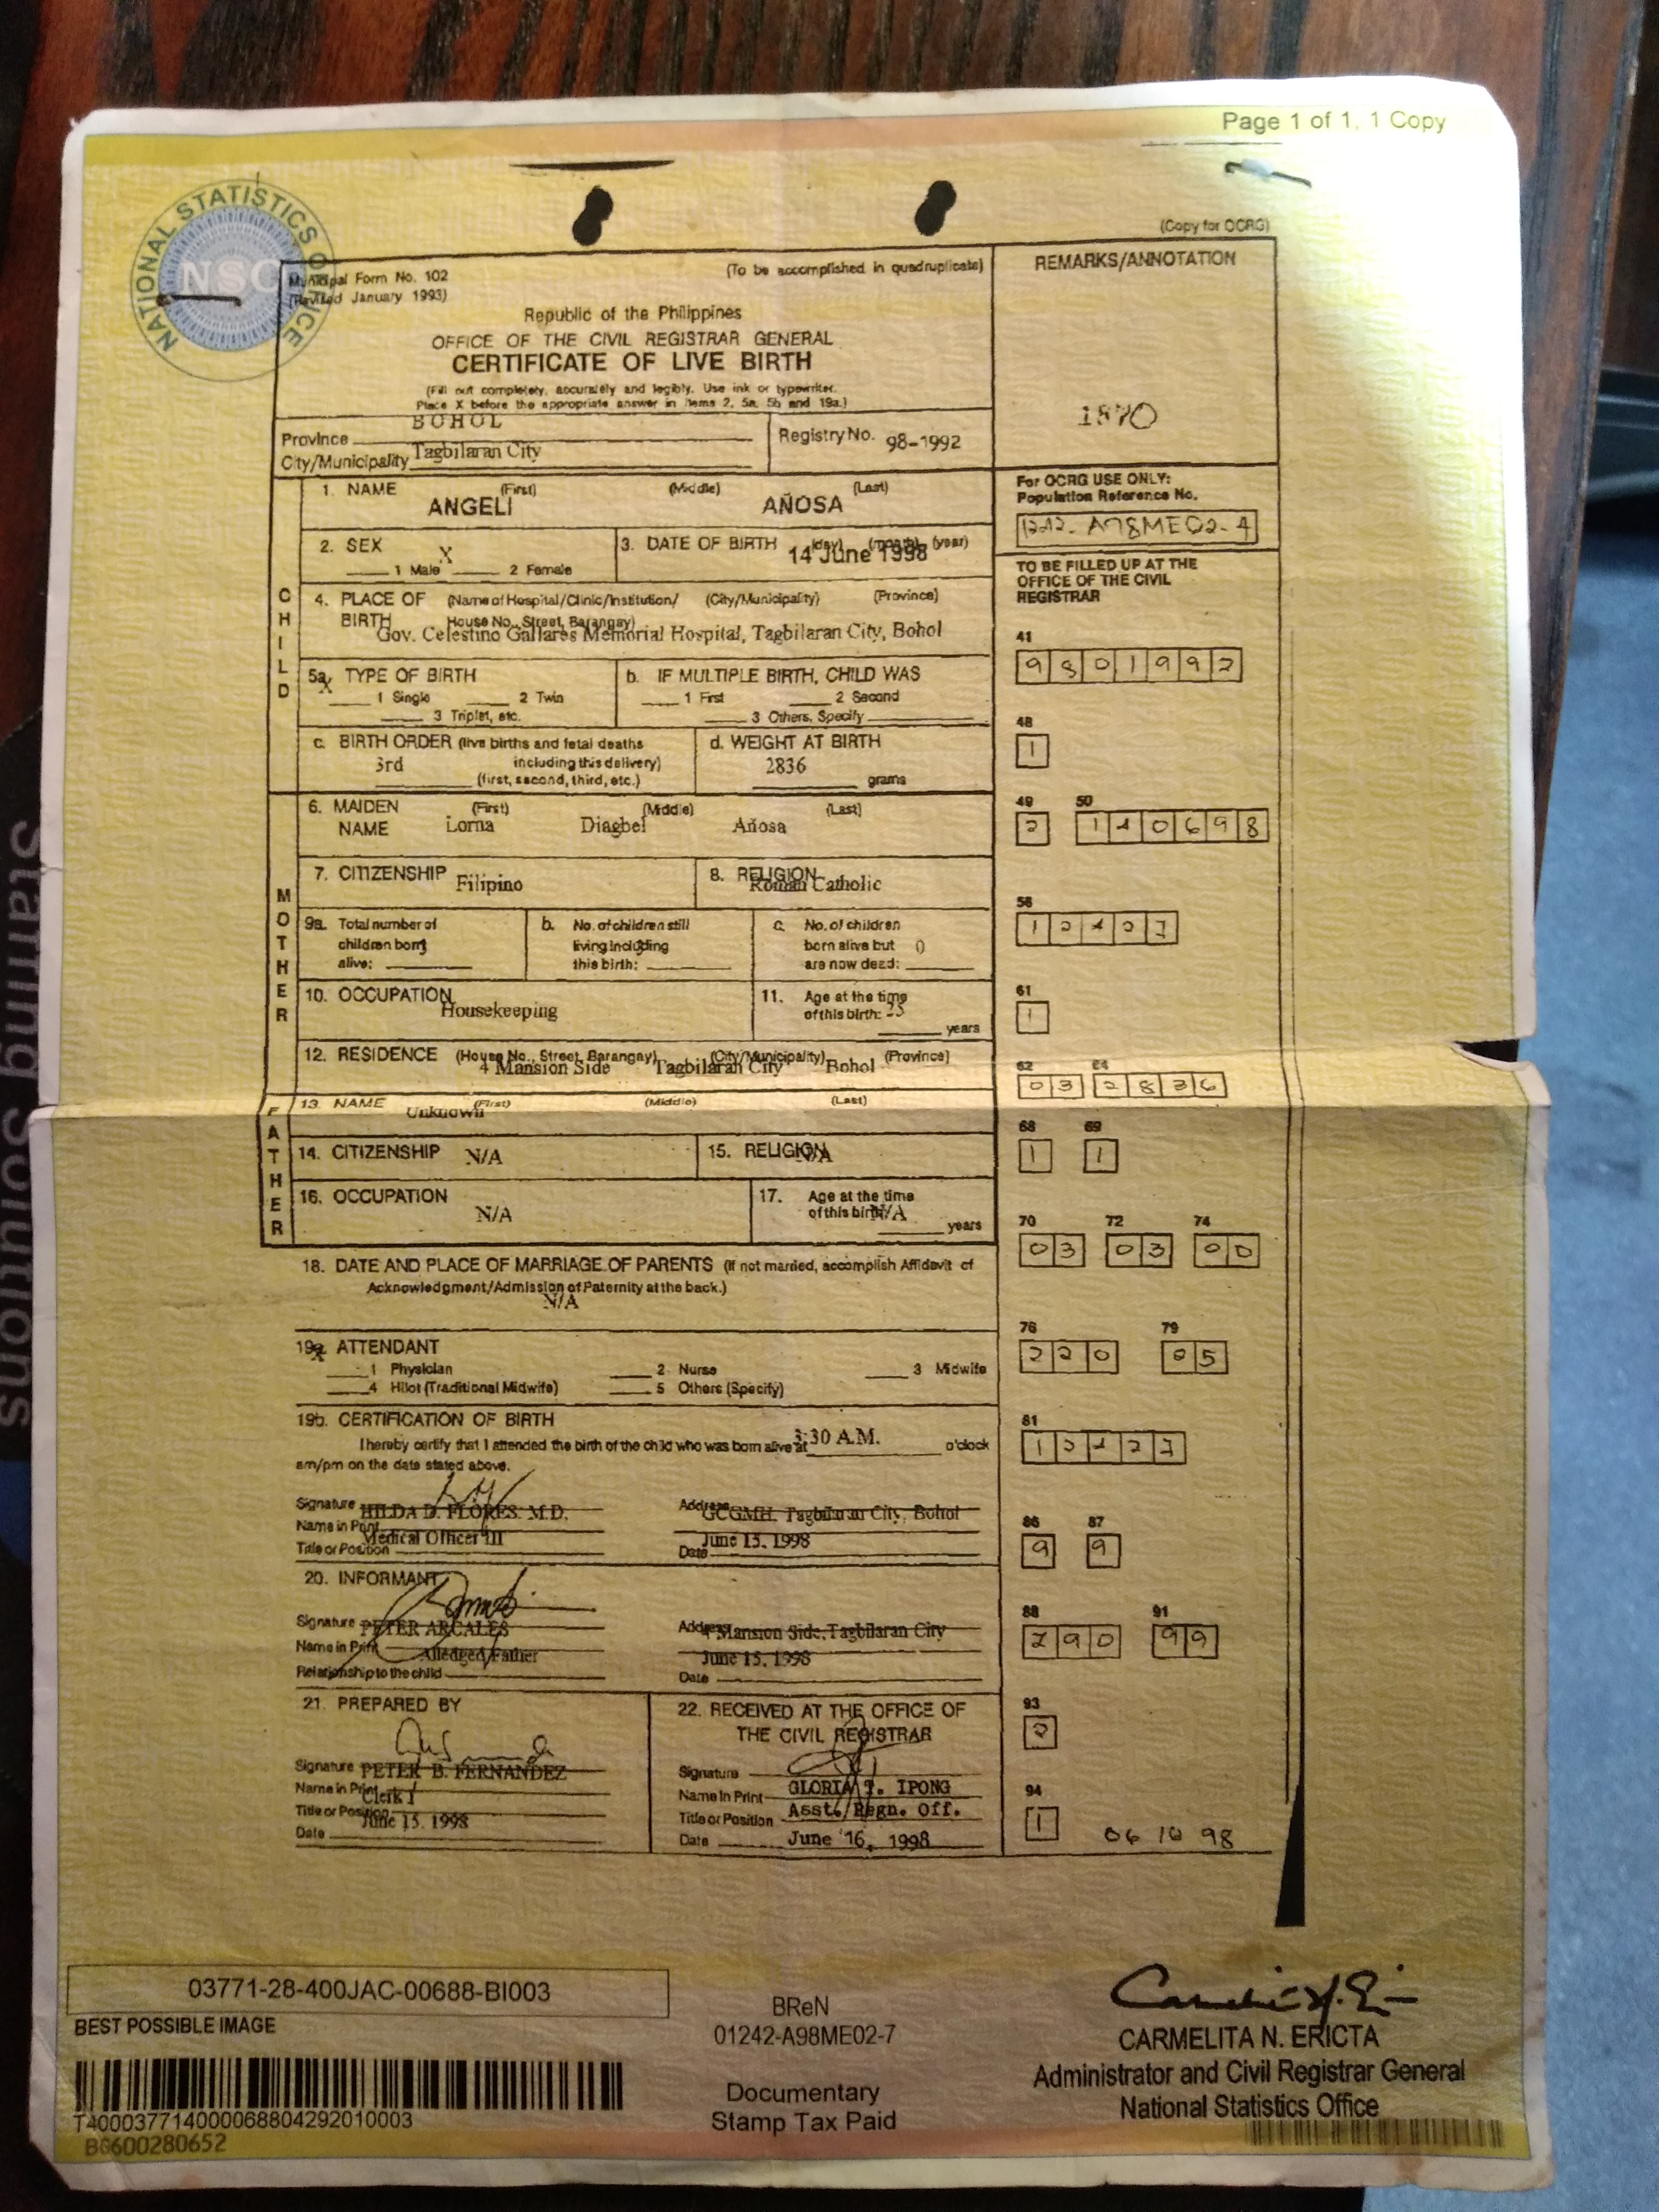 Page 1 of 1, 1 Copy
NATIONAL STATISTICS OFFICE
NSO
(Copy for OCRG)
Municipal Form No. 102
(Revised January 1993)
(To be accomplished in quadruplicate)
Republic of the Philippines
OFFICE OF THE CIVIL REGISTRAR GENERAL
CERTIFICATE OF LIVE BIRTH
(Fill out completely, accurately and legibly. Use ink or typewriter.
Place X before the appropriate answer in items 2, 5a, 5b and 19a.)
REMARKS/ANNOTATION
1870
Province BOHOL
City/Municipality Tagbilaran City
Registry No. 98-1992
For OCRG USE ONLY:
Population Reference No.
CHILD
1. NAME (First) (Middle) (Last)
ANGELI AÑOSA
2. SEX X
1 Male 2 Female
3. DATE OF BIRTH (day) (month) (year)
14 June 1998
TO BE FILLED UP AT THE
OFFICE OF THE CIVIL
REGISTRAR
4. PLACE OF BIRTH (Name of Hospital/Clinic/Institution/ (City/Municipality) (Province)
House No., Street, Barangay)
Gov. Celestino Gallares Memorial Hospital, Tagbilaran City, Bohol
41
9801992
5a. TYPE OF BIRTH
X 1 Single 2 Twin
3 Triplet, etc.
b. IF MULTIPLE BIRTH, CHILD WAS
1 First 2 Second
3 Others, Specify
48
1
c. BIRTH ORDER (live births and fetal deaths
3rd including this delivery)
(first, second, third, etc.)
d. WEIGHT AT BIRTH
2836 grams
MOTHER
6. MAIDEN NAME (First) (Middle) (Last)
Lorna Diagbel Añosa
49 50
2 140698
7. CITIZENSHIP Filipino
8. RELIGION Roman Catholic
9a. Total number of
children born
alive:
b. No. of children still
living including
this birth:
c. No. of children
born alive but 0
are now dead:
56
12427
10. OCCUPATION Housekeeping
11. Age at the time
of this birth: years
61
1
12. RESIDENCE (House No., Street, Barangay) (City/Municipality) (Province)
4 Mansion Side Tagbilaran City Bohol
62 64
03 2836
FATHER
13. NAME (First) (Middle) (Last)
Unknown
14. CITIZENSHIP N/A
15. RELIGION N/A
68 69
1 1
16. OCCUPATION N/A
17. Age at the time
of this birth: N/A years
70 72 74
03 03 00
18. DATE AND PLACE OF MARRIAGE OF PARENTS (If not married, accomplish Affidavit of
Acknowledgment/Admission of Paternity at the back.)
N/A
19a. ATTENDANT
X 1 Physician 2 Nurse 3 Midwife
4 Hilot (Traditional Midwife) 5 Others (Specify)
76 79
220 05
19b. CERTIFICATION OF BIRTH
I hereby certify that I attended the birth of the child who was born alive at 3:30 A.M. o'clock
am/pm on the date stated above.
81
12427
Signature
Name in Print HILDA D. FLORES. M.D.
Title or Position Medical Officer III
Address GCGMH. Tagbilaran City, Bohol
Date June 15, 1998
86 87
9 9
20. INFORMANT
Signature
Name in Print PETER ARCALES
Relationship to the child Alledged Father
Address 4 Mansion Side, Tagbilaran City
Date June 15, 1998
88 91
290 99
21. PREPARED BY
Signature
Name in Print PETER B. FERNANDEZ
Title or Position Clerk I
Date June 15, 1998
22. RECEIVED AT THE OFFICE OF
THE CIVIL REGISTRAR
Signature
Name in Print GLORIA T. IPONG
Title or Position Asst. Regn. Off.
Date June 16, 1998
93
2
94
1
03771-28-400JAC-00688-BI003
BEST POSSIBLE IMAGE
T400037714000068804292010003
BG600280652
BReN
01242-A98ME02-7
Documentary
Stamp Tax Paid
CARMELITA N. ERICTA
Administrator and Civil Registrar General
National Statistics Office
starring solutions